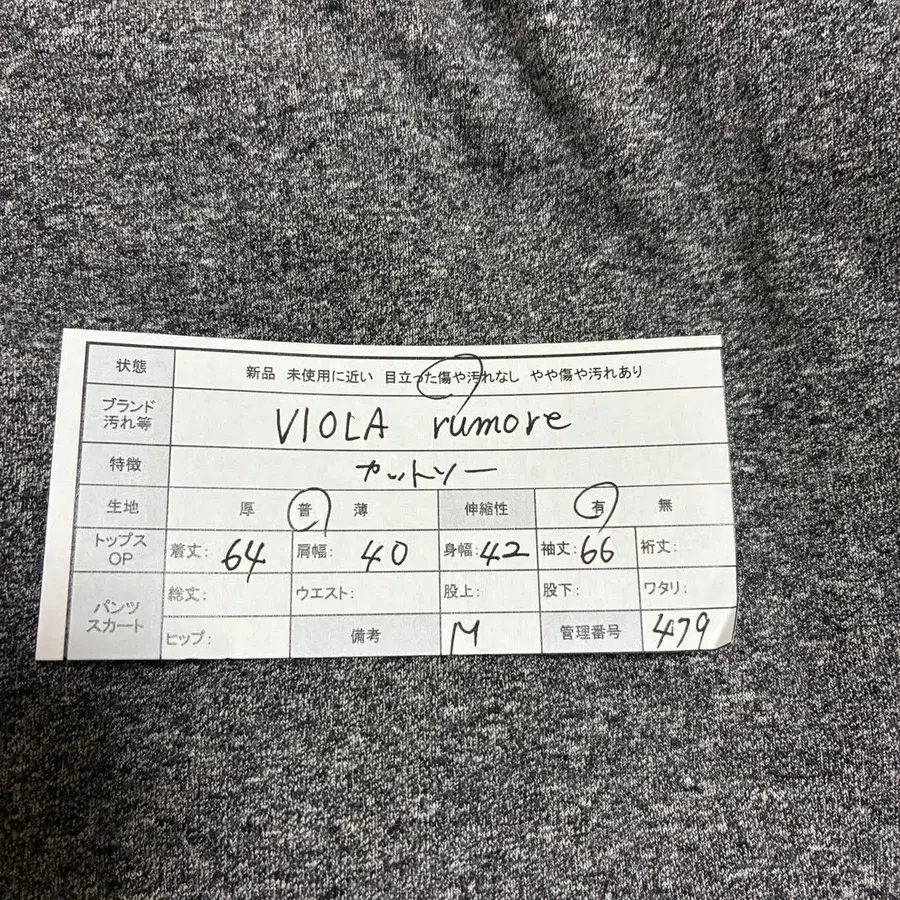 状態 新品 未使用に近い 目立った傷や汚れなし やや傷や汚れあり
ブランド
汚れ等 VIOLA rumore
特徴 カットソー
生地 厚 普 薄 伸縮性 有 無
トップス
OP 着丈: 64 肩幅: 40 身幅: 42 袖丈: 66 裄丈:
パンツ
スカート 総丈: ウエスト: 股上: 股下: ワタリ:
ヒップ: 備考 M 管理番号 479